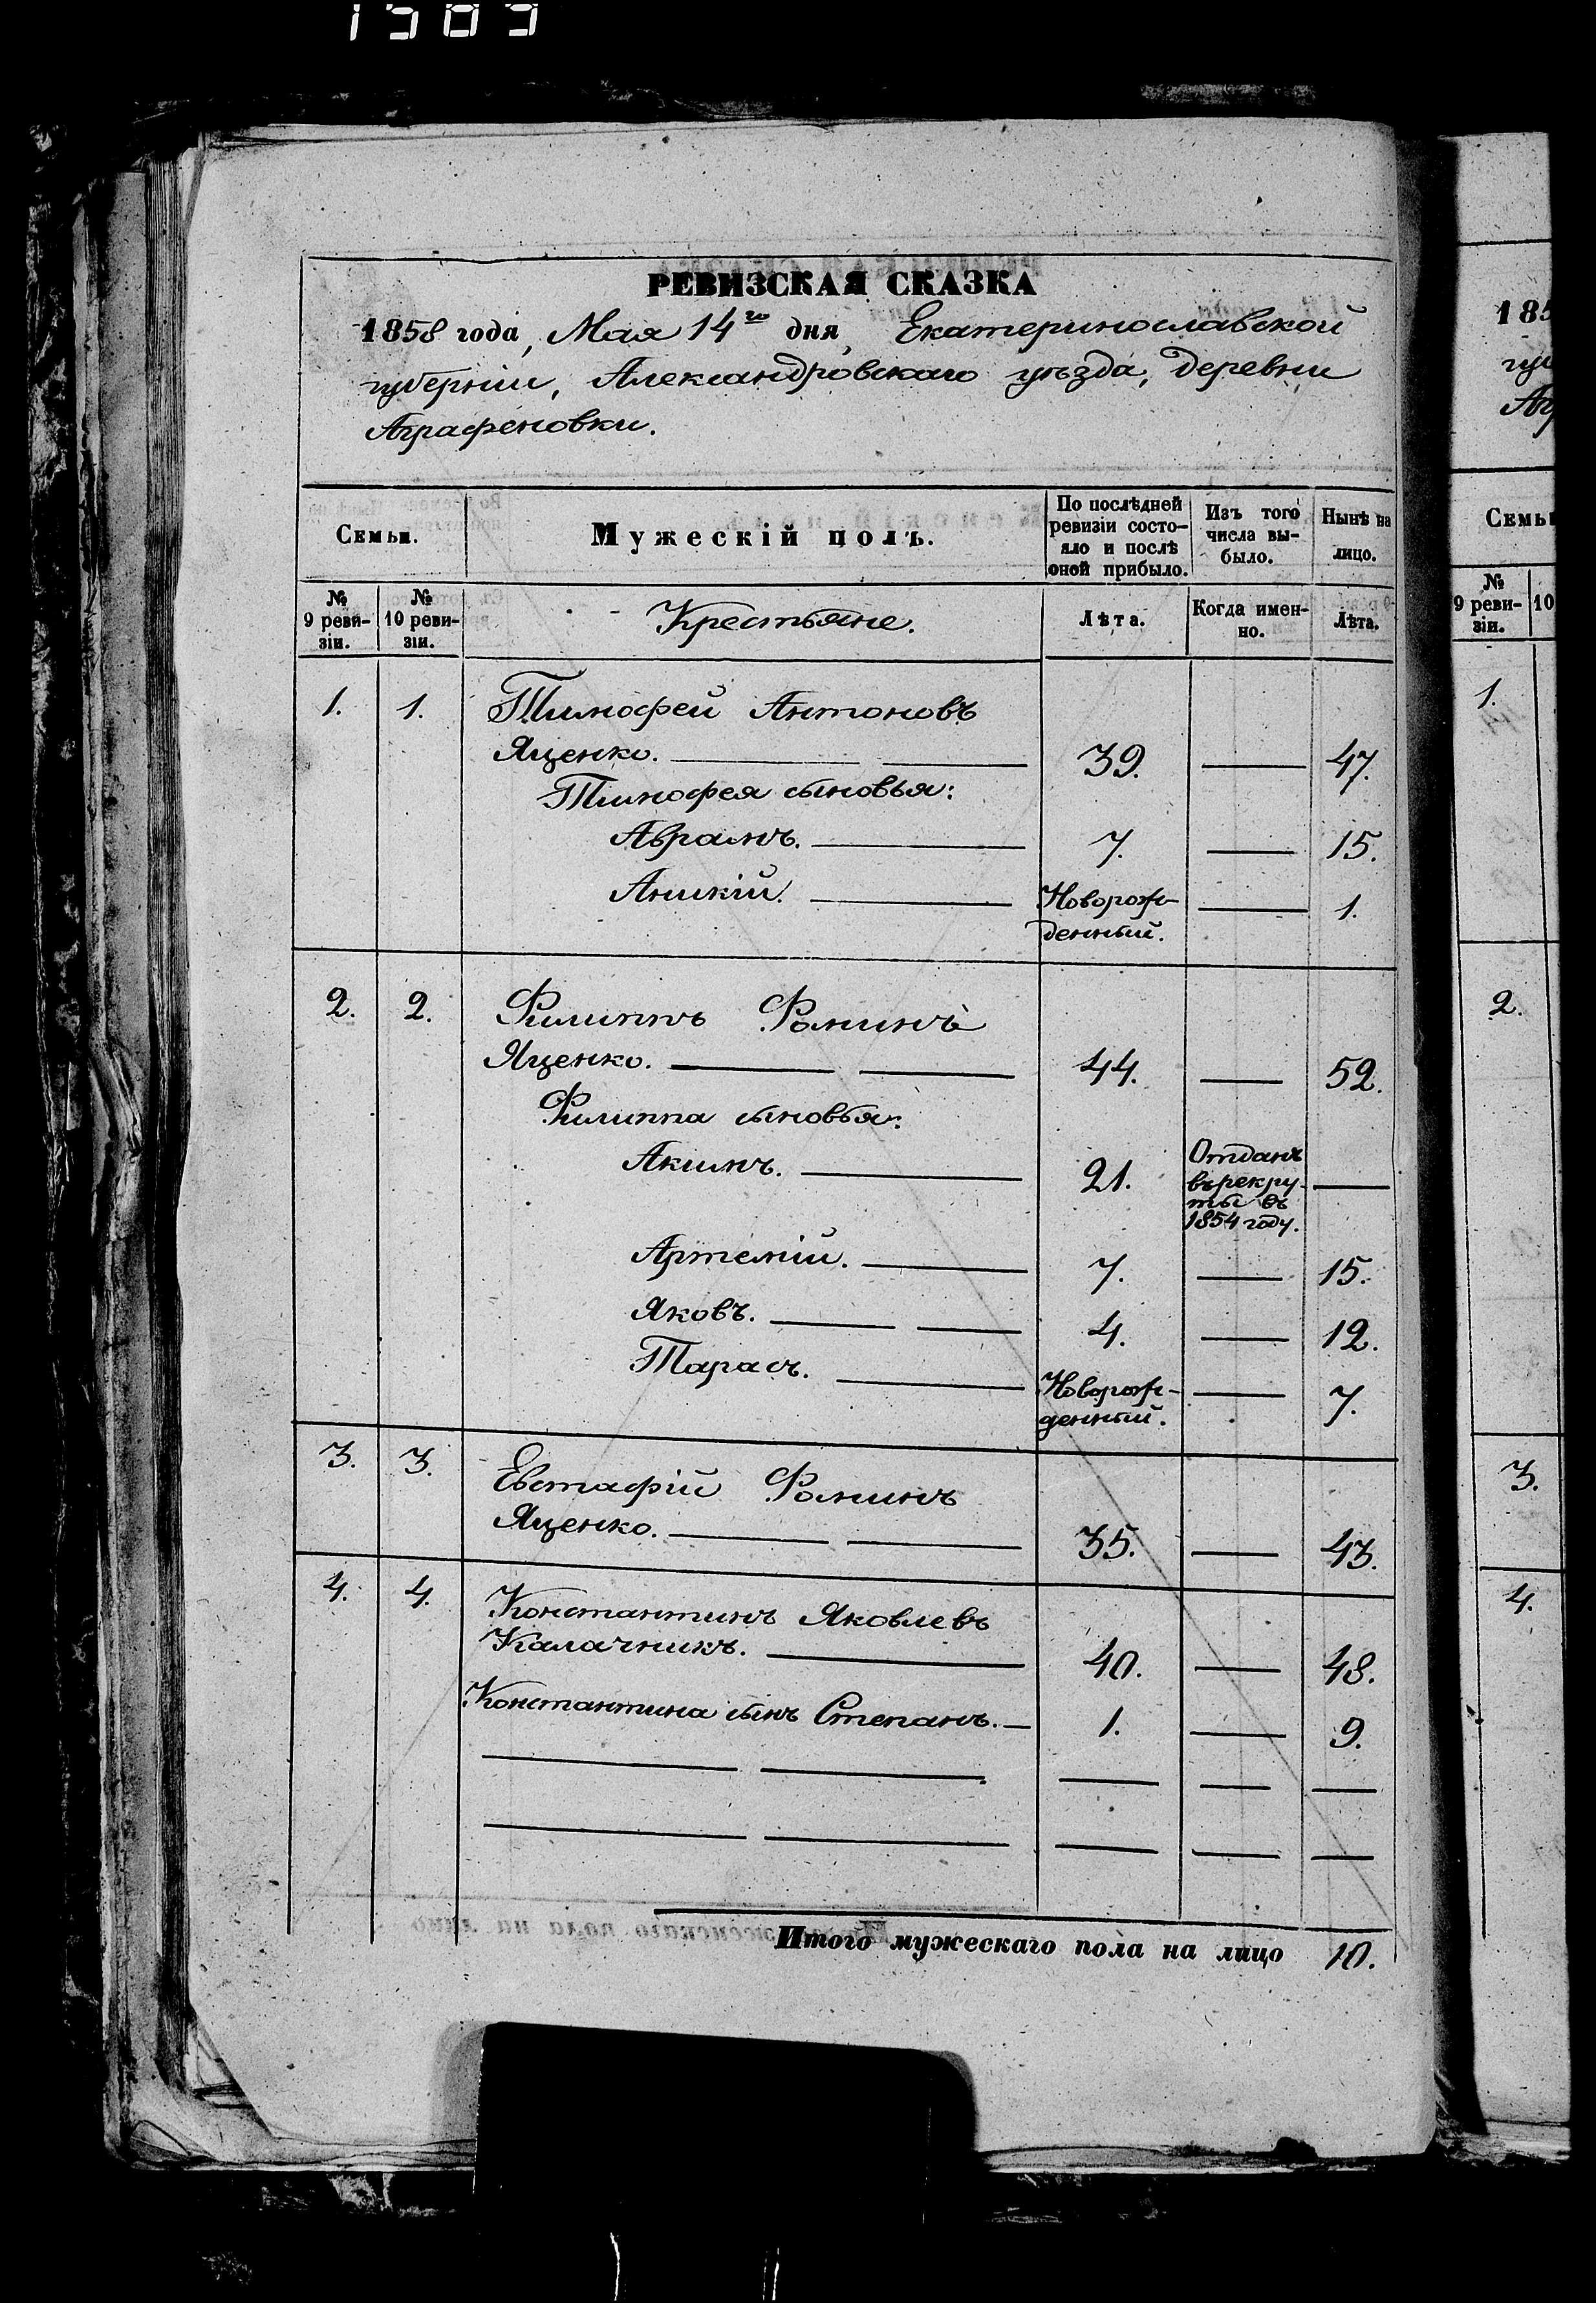 1503
РЕВИЗСКАЯ СКАЗКА
1858 года, Мая 14го дня, Екатеринославской
губерніи, Александровскаго уѣзда, деревни
Аграфеновки.
Семьи.
Мужескій полъ.
По послѣдней ревизіи состо-яло и послѣ оной прибыло.
Изъ того числа вы-было.
Нынѣ на лицо.
№ 9 реви-зіи.
№ 10 реви-зіи.
Крестьяне.
Лѣта.
Когда имен-но.
Лѣта.
1. 1. Тимофей Антоновъ
Яценко. 39. — 47.
Тимофея сыновья:
Аврамъ. 7. — 15.
Аникій. Новорож-денный. — 1.
2. 2. Филиппъ Фоминъ
Яценко. 44. — 52.
Филиппа сыновья:
Акимъ. 21. Отданъ въ рекру-ты въ 1854 году. —
Артемій. 7. — 15.
Яковъ. 4. — 12.
Тарасъ. Новорож-денный. — 7.
3. 3. Евстафій Фоминъ
Яценко. 35. — 43.
4. 4. Константинъ Яковлевъ
Калачникъ. 40. — 48.
Константина сынъ Степанъ. 1. — 9.
Итого мужескаго пола на лицо 10.
185
гу
Аг
Семьи
№ 9 реви-зіи.
10
1.
2.
3.
4.